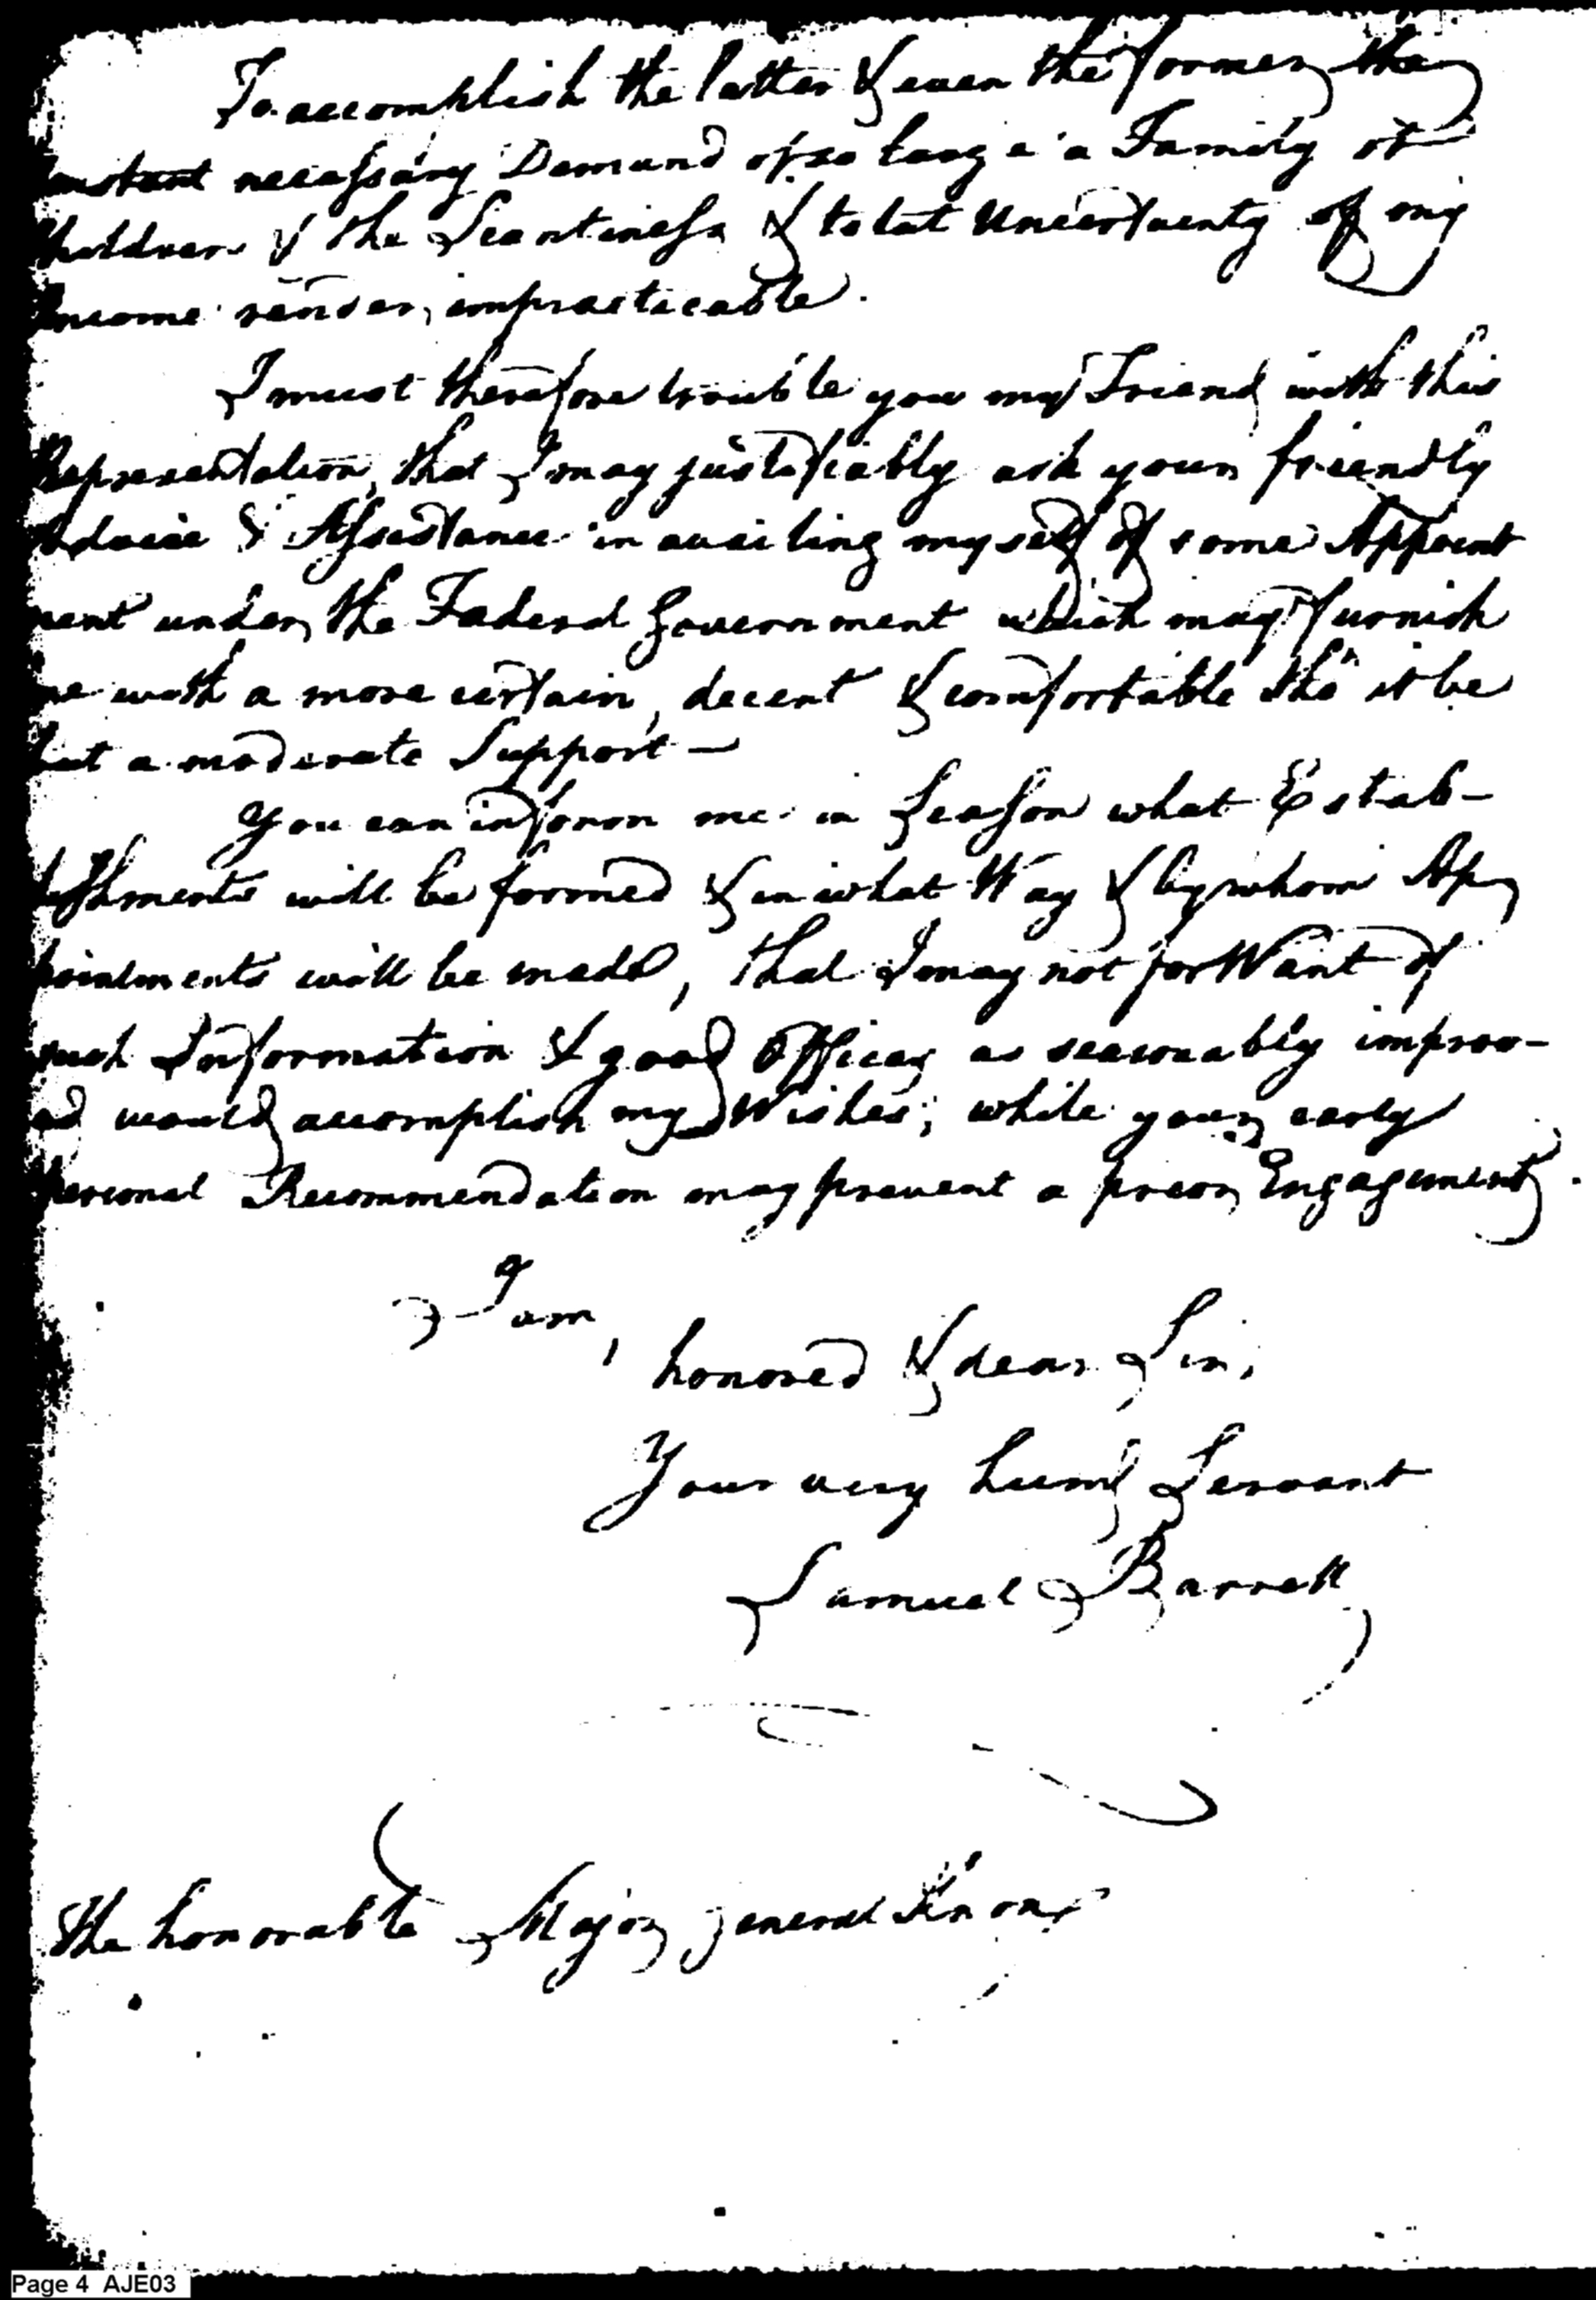 To accomplish the latter & even the former, the
constant necessary Demand of so large a Family of
Children & the Scantiness & total Uncertainty of my
Income render impracticable.
I must therefore trouble you my Friend with this
Representation, that I may justifiably ask your friendly
Advice & Assistance in availing myself of some Appoint
ment under the Federal Government which may furnish
me with a more certain, decent & comfortable tho' it be
but a moderate Support —
You can inform me in Season what Estab-
lishments will be formed & in what Way & by whom Ap
pointments will be made, that I may not for Want of
such Information & good Offices as seasonably improv-
ed would accomplish my Wishes; while your early
personal Recommendation may prevent a prior Engagement.
I am,
honored & dear Sir,
Your very huml Servant
Samuel Barrett
The honorable Major general Knox
Page 4 AJE03